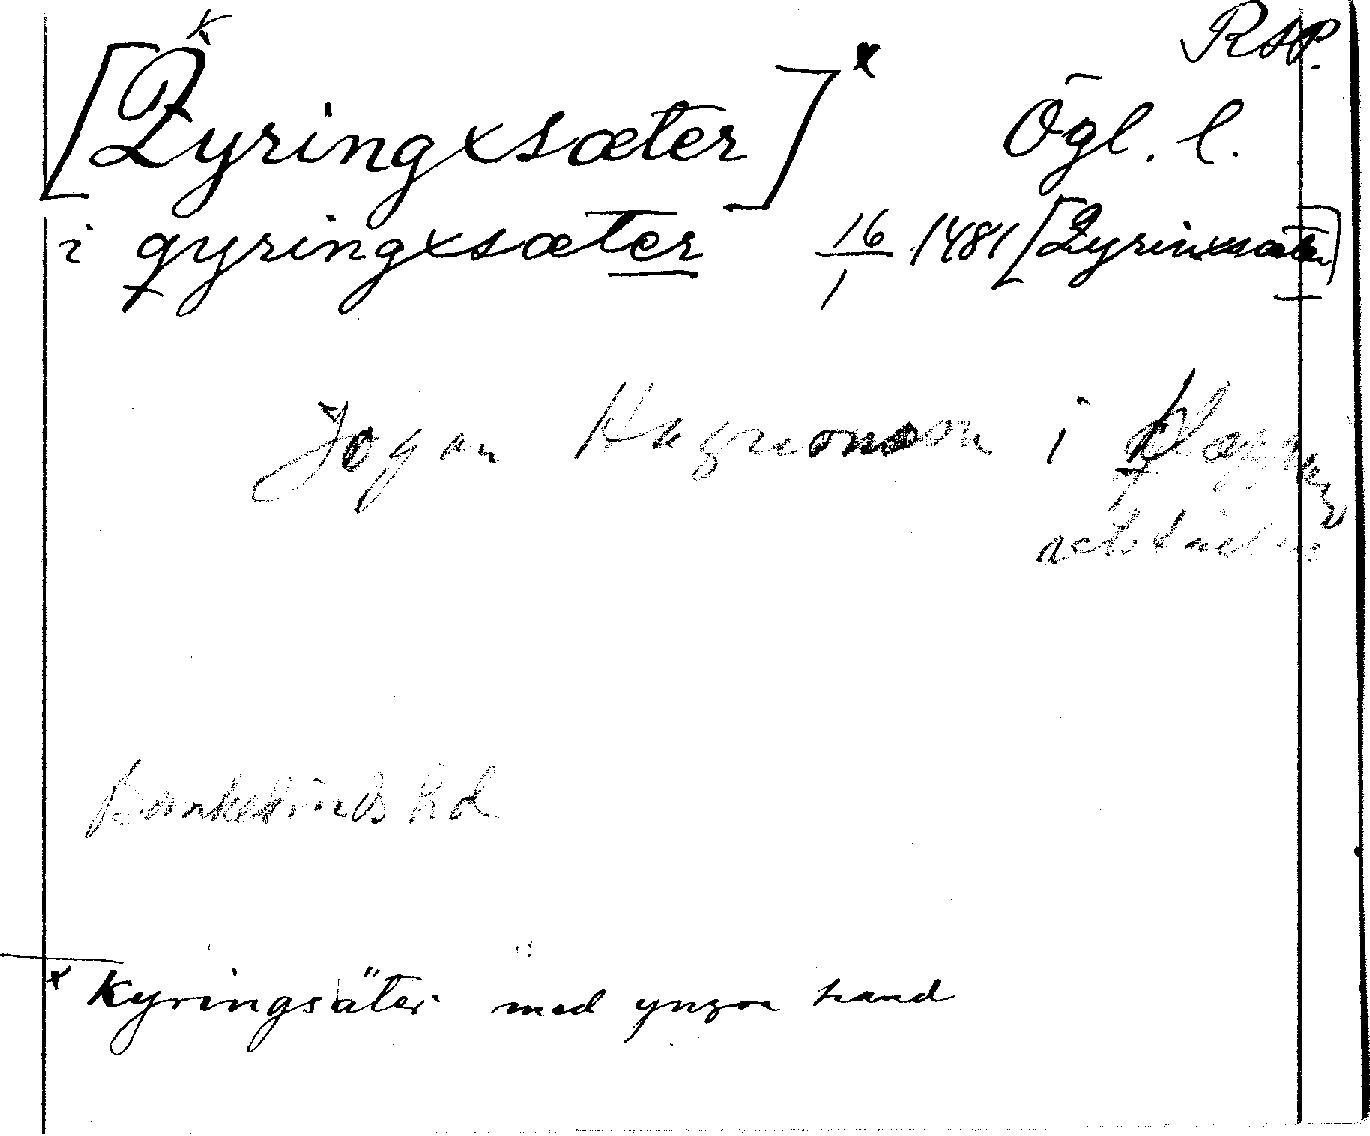 K RAP.
[Qyringxsæter]x Ögl. l.
i qyringxsæter 16/1 1481 [Qyrinxsæter]
Jogan Hagmonson i
Bankekinds hd
x Kyringsäter med yngre hand